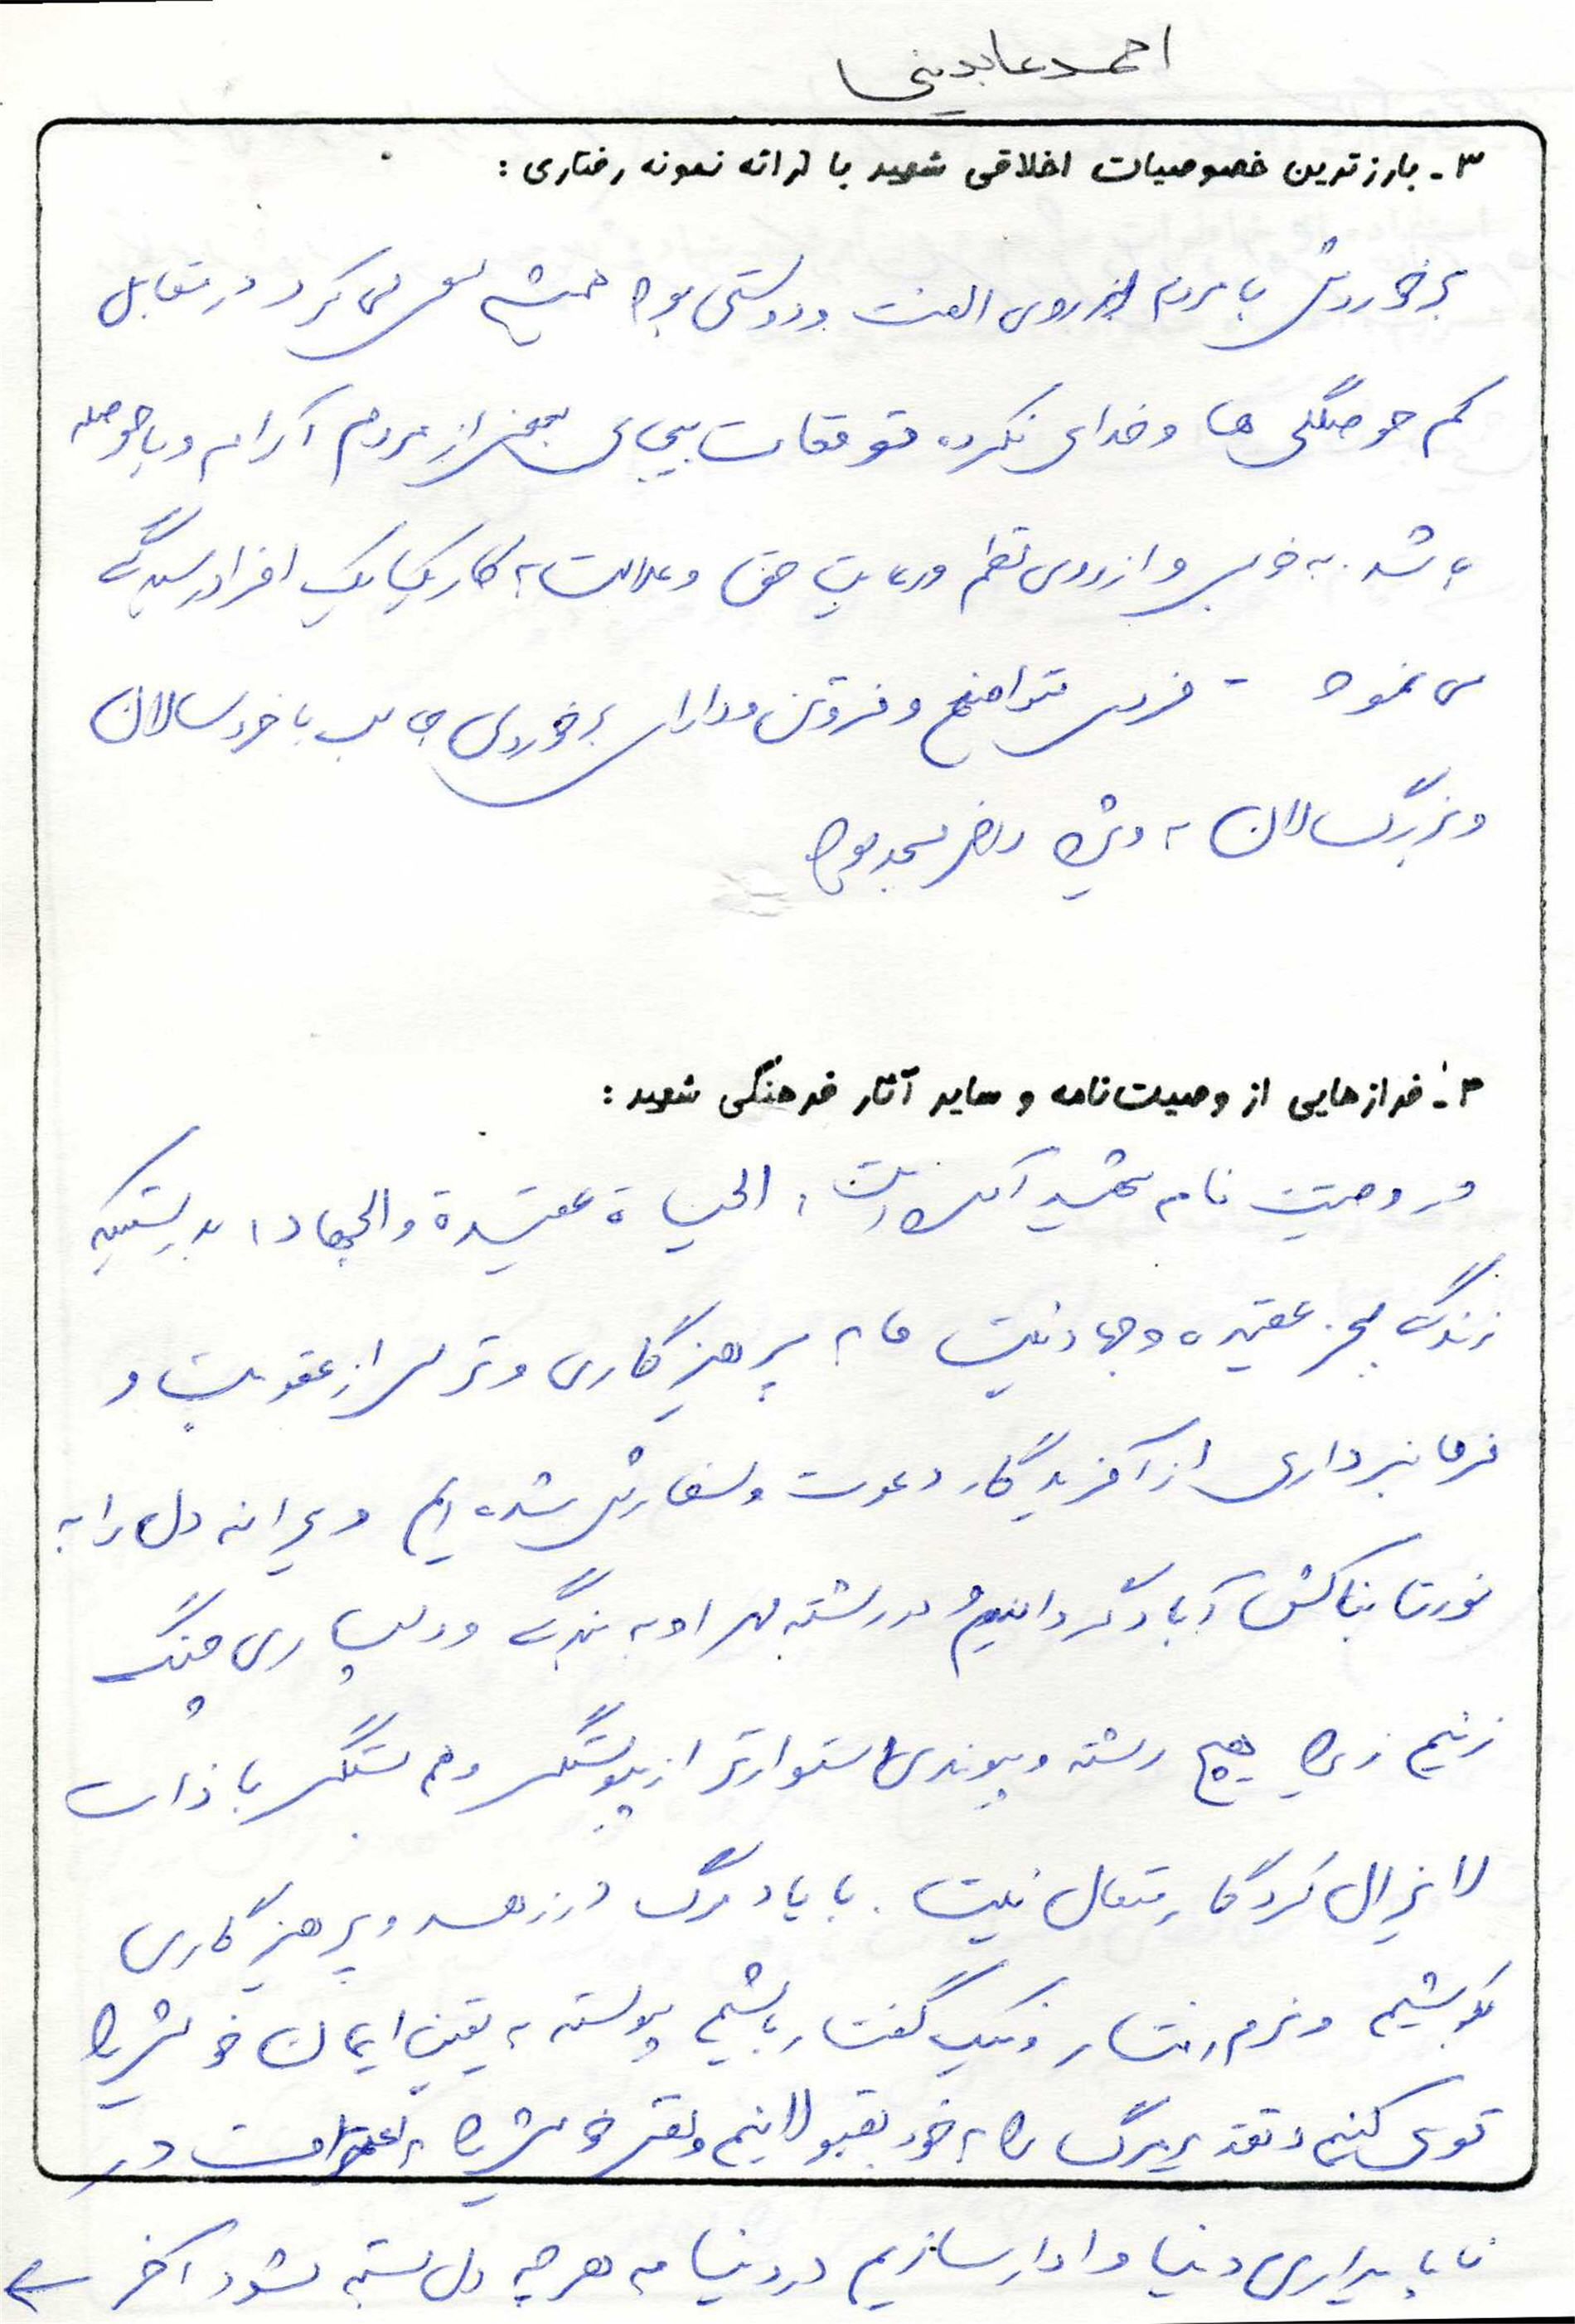 احمد عابدینی
۳- بارزترین خصوصیات اخلاقی شهید با ارائه نمونه رفتاری :
برخوردش با مردم از روی الفت و دوستی بود همیشه سعی می کرد در مقابل
کم حوصلگی ها و خدای نکرده توقعات بیجای بعضی از مردم آرام و با حوصله
باشد. به خوبی و از روی نظم و رعایت حق و عدالت به کار یکایک افراد رسیدگی
می نمود - فردی متواضع و فروتن و دارای برخوردی جالب با خردسالان
و بزرگسالان به ویژه در مسجد بود
۴- فرازهایی از وصیت‌نامه و سایر آثار فرهنگی شهید :
در وصیت نامه شهید آمده است: الحیاة عقیدة والجهاد، بدرستیکه
زندگی بجز عقیده و جهاد نیست ما به پرهیزگاری و ترس از عقوبت و
فرمانبرداری از آفریدگار دعوت و سفارش شده ایم ویرانه دل را به
نور تابناکش آباد گردانیم و در رشته مهر او به بندگی و دلسپاری چنگ
زنیم زیرا هیچ رشته و پیوندی استوارتر از پیوستگی و هم بستگی با ذات
لایزال کردگار متعال نیست. با یاد مرگ در زهد و پرهیزگاری
بکوشیم و نرم رفتار و نیک گفتار باشیم پیوسته به یقین ایمان خویش را
قوی کنیم و تقدیر مرگ را به خود بقبولانیم و نفس خویش را به اعتراف در
ناپایداری دنیا وادار سازیم در دنیا به هر چه دل بسته شود آخر ←